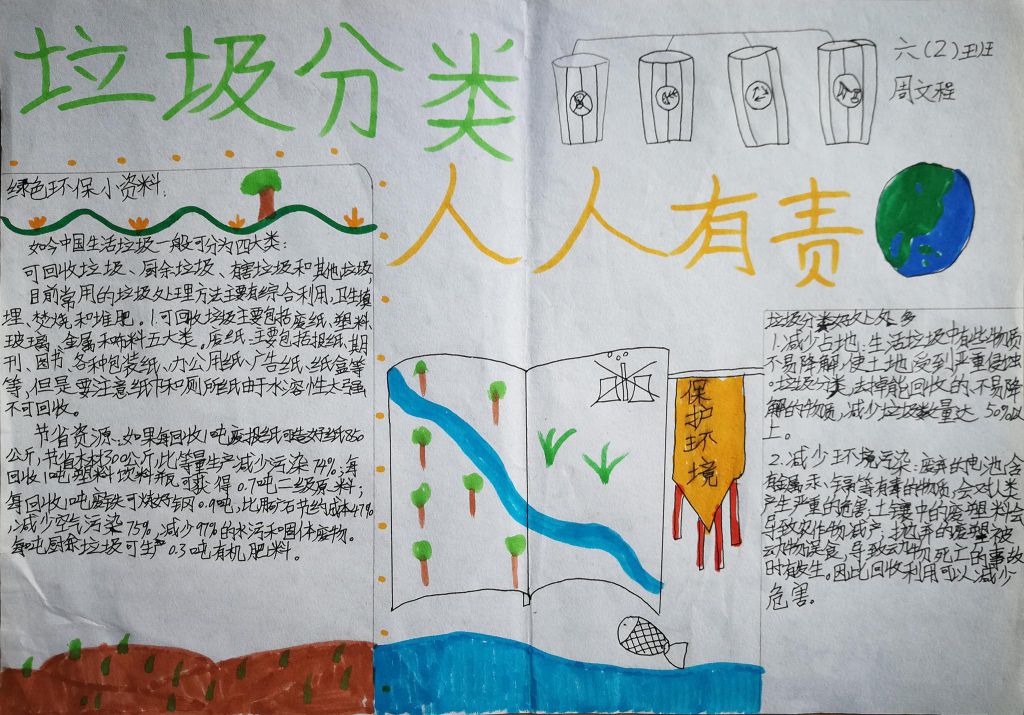 垃圾分类
六(2)班
周文程
人人有责
绿色环保小资料:
如今中国生活垃圾一般可分为四大类:
可回收垃圾、厨余垃圾、有害垃圾和其他垃圾,
目前常用的垃圾处理方法主要有综合利用,卫生填
埋、焚烧和堆肥。1.可回收垃圾主要包括废纸、塑料、
玻璃、金属和布料五大类。废纸:主要包括报纸、期
刊、图书、各种包装纸、办公用纸、广告纸、纸盒等
等,但是要注意纸巾和厕所纸由于水溶性太强
不可回收。
节省资源:如果每回收1吨废报纸可造好纸850
公斤,节省木材300公斤,比等量生产减少污染74%;每
回收1吨塑料饮料瓶可获得0.7吨二级原料;
每回收1吨废铁可炼好钢0.9吨,比用矿石节约成本47%
,减少空气污染75%,减少97%的水污和固体废物。
每吨厨余垃圾可生产0.3吨有机肥料。
保护环境
垃圾分类好处多
1.减少占地:生活垃圾中有些物质
不易降解,使土地受到严重侵蚀
。垃圾分类,去掉能回收的、不易降
解的物质,减少垃圾数量达50%以
上。
2.减少环境污染:废弃的电池含
有金属汞、镉等有毒的物质,会对人类
产生严重的危害,土壤中的废塑料会
导致农作物减产;抛弃的废塑料被
动物误食,导致动物死亡的事故
时有发生。因此回收利用可以减少
危害。